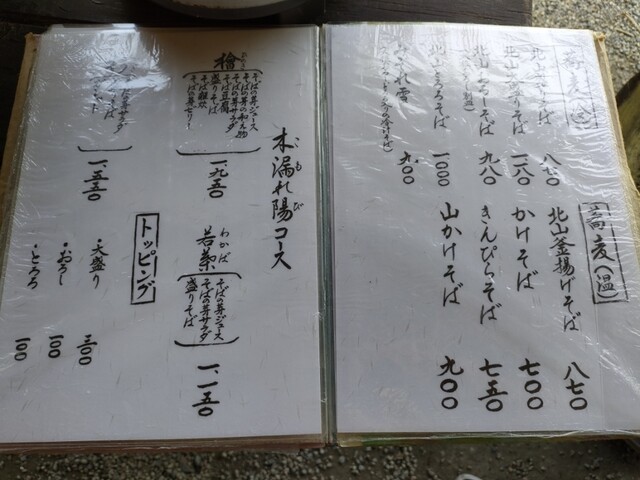 蕎麦(冷)
八七〇
一二八〇
北山おろしそば
九八〇
北山とろろそば
一〇〇〇
みぞれ雪
九〇〇
蕎麦(温)
北山釜揚げそば
八七〇
かけそば
七〇〇
きんぴらそば
七五〇
山かけそば
九〇〇
木漏れ陽コース
こもれび
檜
そばの芽ジュース
そばの芽の和え物
そばの芽サラダ
そば豆腐
盛りそば
そば雑炊
そば芽ゼリー
一、九五〇
一、五五〇
若葉
わかば
そばの芽ジュース
そばの芽サラダ
盛りそば
一、一五〇
トッピング
・大盛り
三〇〇
・おろし
一〇〇
・とろろ
一〇〇